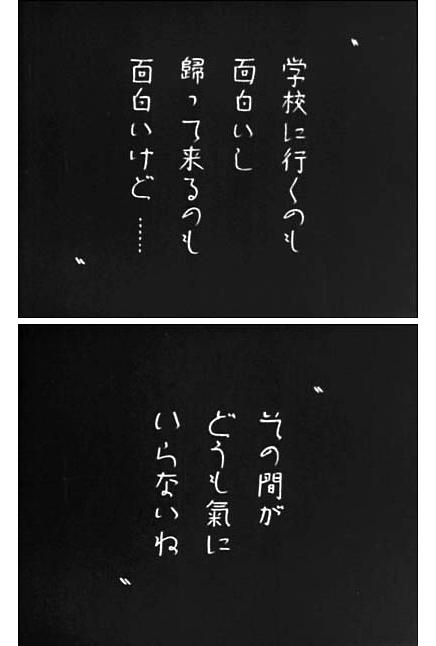 〝学校に行くのも
面白いし
歸って来るのも
面白いけど……〟
〝その間が
どうも氣に
いらないね〟